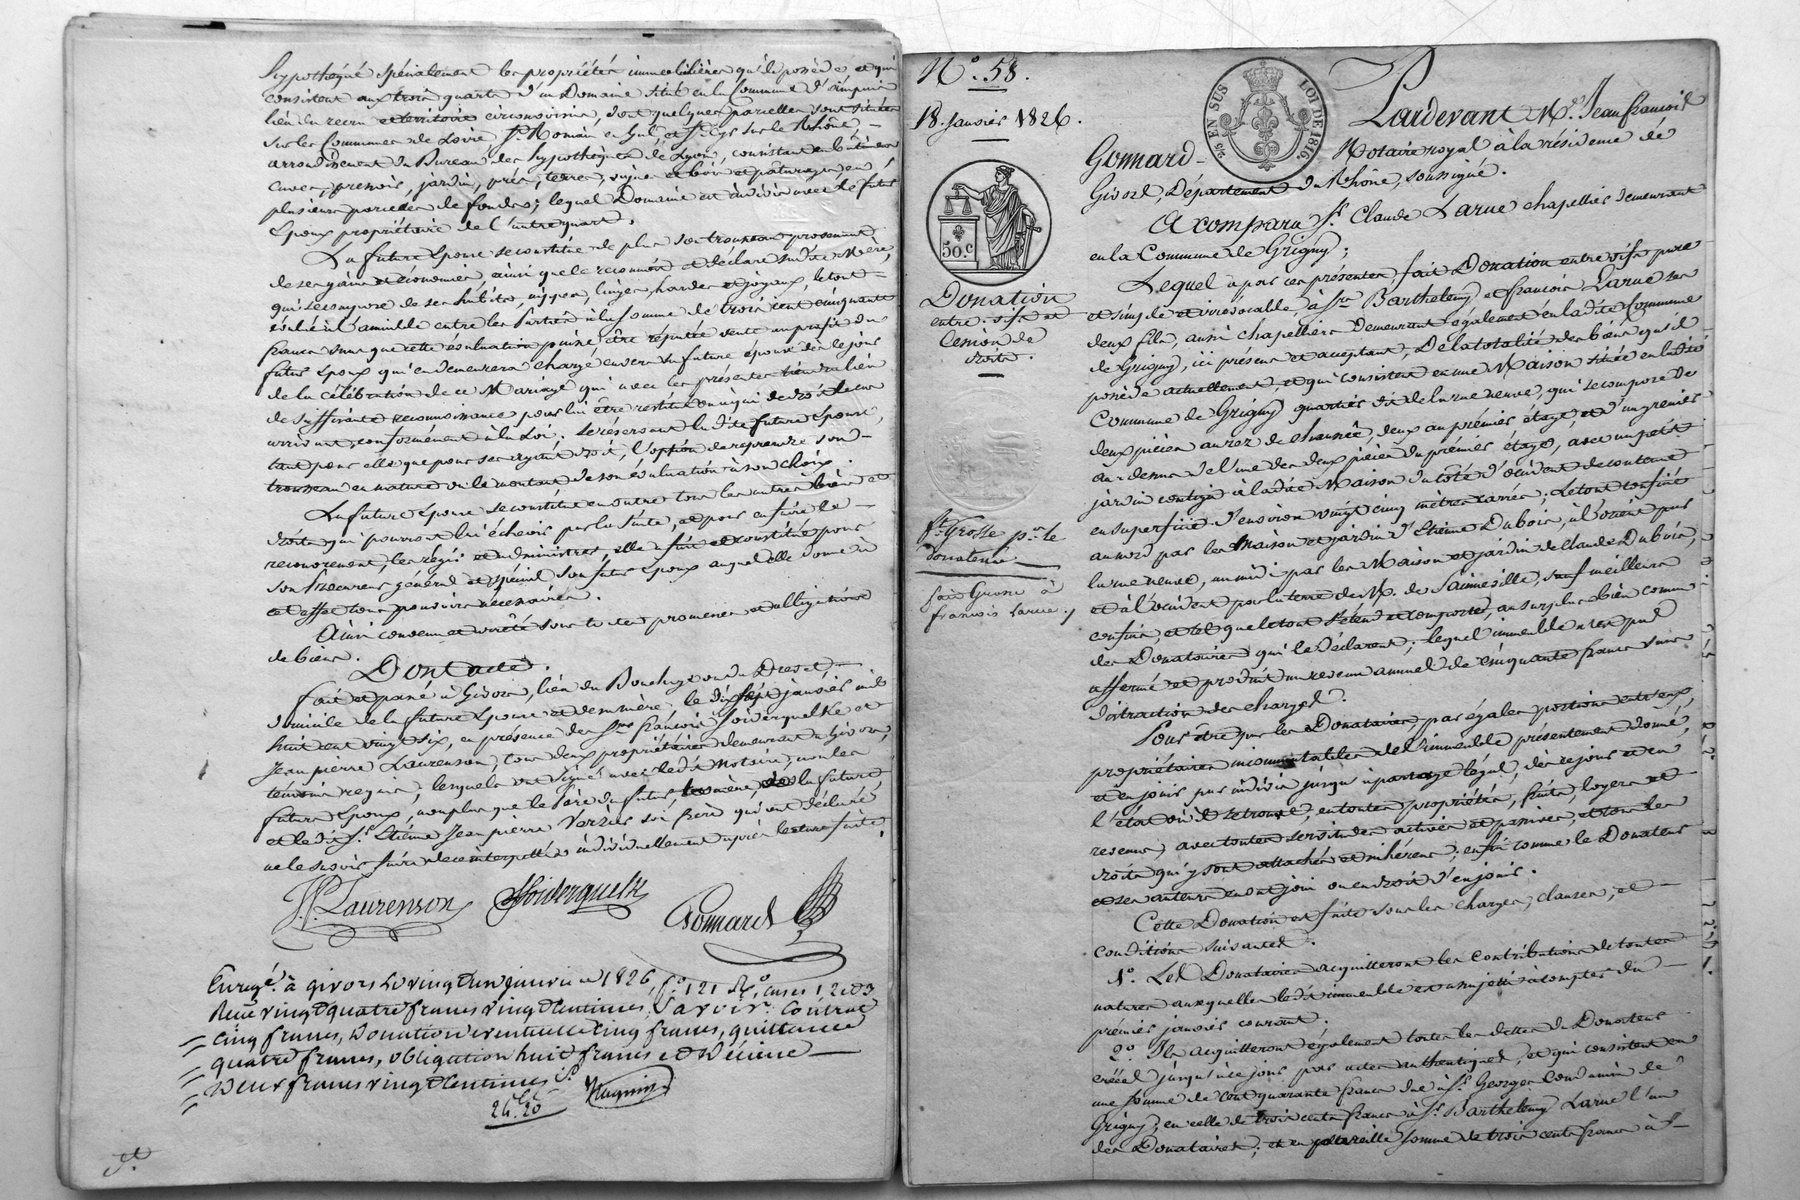 hypothéqué spécialement les propriétés immobilières qu'il possède et qui
consistent aux trois quarts d'un Domaine situé en la Commune d'
lieu du recru et territoire circonvoisins, dont quelques parcelles sont situées
sur les Communes de Loire, St Romain en Gal et St Cyr sur le Rhône
arrondissement du Bureau des hypothèques de Lyon, consistant en bâtimens
cuves, pressoir, jardin, prés, terres, vignes et bois et pâturages en
plusieurs parcelles de fonds; lequel Domaine est indivis avec le futur
Epoux propriétaire de l'autre quart.
La future Epouse se constitue de plus son trousseau provenant
de ses gains et économies, ainsi que le reconnoît et déclare sadite Mère,
qui se compose de ses habits, nippes, linges, hardes et joyaux, le tout
évalué à l'amiable entre les Parties à la somme de trois cent cinquante
francs sans que cette évaluation puisse être réputée vente au profit du
futur Epoux qui en demeurera chargé envers la future épouse dès le jour
de la célébration de ce Mariage qui avec les présentes tiendra lieu
de suffisante reconnoissance pour lui être restitué ou à qui de droit le cas
arrivant, conformément à la Loi. Se réservant ladite future Epouse,
tant pour elle que pour ses ayant droit, l'option de reprendre son
trousseau en nature ou le montant de son évaluation à son choix.
La future Epouse se constitue en outre tous les autres biens et
droits qui pourront lui échoir par la suite, et pour en faire le
recouvrement, les régir et administrer, elle a fait et constitué pour
son Procureur général et spécial son futur Epoux auquel elle donne à
cet effet tous pouvoirs nécessaires.
Ainsi convenu et arrêté sous toutes promesses et obligations
de biens.
Dont acte.
fait et passé à Givors, lieu du Bouchage ou du Drevet,
domicile de la future Epouse et de sa mère, le dix sept janvier mil
huit cent vingt six, en présence des Srs François Soiderquelk et
Jean pierre Laurenson, tous deux propriétaires demeurant à Givors,
témoins requis, lesquels ont signé avec ledit Notaire, non les
futurs Epoux, non plus que le Père du futur, la mère de la future
et ledit Sr Etienne Jean pierre son frère qui ont déclaré
ne le savoir faire de ce interpellés individuellement après lecture faite.
J. P. Laurenson Soiderquelk
Gonnard
Enregé. à givors le vingt un janvier 1826, fo. 121 Ro. cases 1 2 et 3
Reçu vingt quatre francs vingt centimes, Savoir: Contrat
cinq francs, Donation éventuelle cinq francs, quittance
quatre francs, obligation huit francs et Décime
Deux francs vingt centimes
24.20
No. 58.
18. Janvier 1826.
50.c
Donation
entre vifs et
Cession de
droits.
fte Grosse pr le
donateur
faite Grosse à
françois Larue.
25 EN SUS
LOI DE 1816.
Pardevant Me. Jean françois
Gonnard Notaire royal à la résidence de
Givors, Département du Rhône, soussigné.
A comparu Sr Claude Larue chapellier demeurant
en la Commune de Grigny;
Lequel a par ces présentes fait Donation entre vifs pure
et simple et irrévocable, à Srs Barthelemy et françois Larue ses
deux fils, aussi chapelliers demeurant également en ladite Commune
de Grigny, ici présens et acceptant, De la totalité des biens qu'il
possède actuellement et qui consistent en une Maison située en ladite
Commune de Grigny quartier dit de la rue neuve, qui se compose de
deux pièces au rez de chaussée, deux au premier étage et d'un grenier
au-dessus de l'une des deux pièces du premier étage, avec un petit
jardin contigu à ladite Maison du côté d'occident de contenue
en superficie d'environ vingt cinq mètres carrés; Le tout confiné
au nord par les Maison et jardin d'Etienne Dubois, à l'orient par
la rue neuve, au midi par les Maison et jardin de Claude Dubois,
et à l'occident par la terre de M. de Jainneville, sauf meilleurs
confins, et tel que le tout s'étend et comporte, au surplus bien connu
des Donataires qui le déclarent; lequel immeuble n'est pas
affermé et produit un revenu annuel de cinquante francs sans
distraction des charges.
Pour être par les Donataires, par égales portions entr'eux,
propriétaires incommutables de l'immeuble présentement donné,
et en jouir par indivis jusqu'à partage légal, dès ce jour et en
l'état où il se trouve, en toutes propriétés, fruits, loyers et
revenus, avec toutes servitudes actives et passives, et tous les
droits qui y sont attachés et inhérens; enfin comme le Donateur
et ses auteurs en ont joui ou eu droit d'en jouir.
Cette Donation est faite sous les charges, clauses, et
conditions suivantes.
1o. Les Donataires acquitteront les contributions de toutes
natures auxquelles ledit immeuble est assujetti à compter du
premier janvier courant.
2o. Ils acquitteront également toutes les dettes du Donateur
créées jusqu'à ce jour par actes authentiques, et qui consistent en
une somme de cent quarante francs due à Sr Georges Condamin de
Grigny; en celle de trois cents francs à Sr Barthelemy Larue l'un
des Donataires; et en pareille somme de trois cents francs à Sr